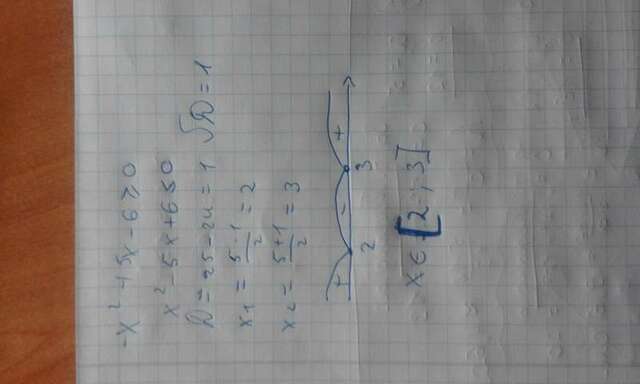 -x² + 5x - 6 ≥ 0
x² - 5x + 6 ≤ 0
D = 25 - 24 = 1 √D = 1
x₁ = (5 - 1)/2 = 2
x₂ = (5 + 1)/2 = 3
+ - +
2 3
x ∈ [2; 3]